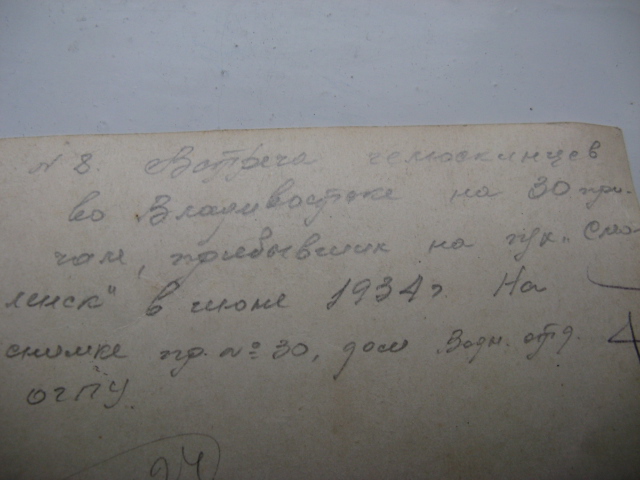 № 8. Встреча челюскинцев
во Владивостоке на 30 при-
чале, прибывших на пух. „Смо
ленск" в июне 1934 г. На
снимке пр. № 30, дом Водн. отд.
ОГПУ.
24